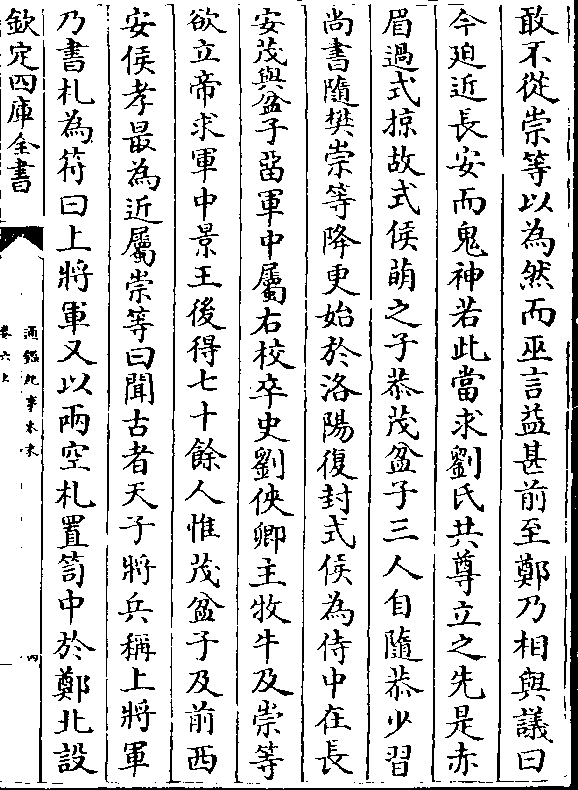 敢不從崇等以為然而巫言益甚前至鄭乃相與議曰
今廹近長安而鬼神若此當求劉氏共尊立之先是赤
眉過式掠故式侯萌之子恭茂盆子三人自隨恭少習
尚書隨樊崇等降更始於洛陽復封式侯為侍中在長
安茂與盆子畱軍中屬右校卒史劉俠卿主牧牛及崇等
欲立帝求軍中景王後得七十餘人惟茂盆子及前西
安侯孝最為近屬崇等曰聞古者天子將兵稱上將軍
乃書札為符曰上將軍又以兩空札置笥中於鄭北設
欽定四庫全書
通鑑紀事本末
卷六上
四